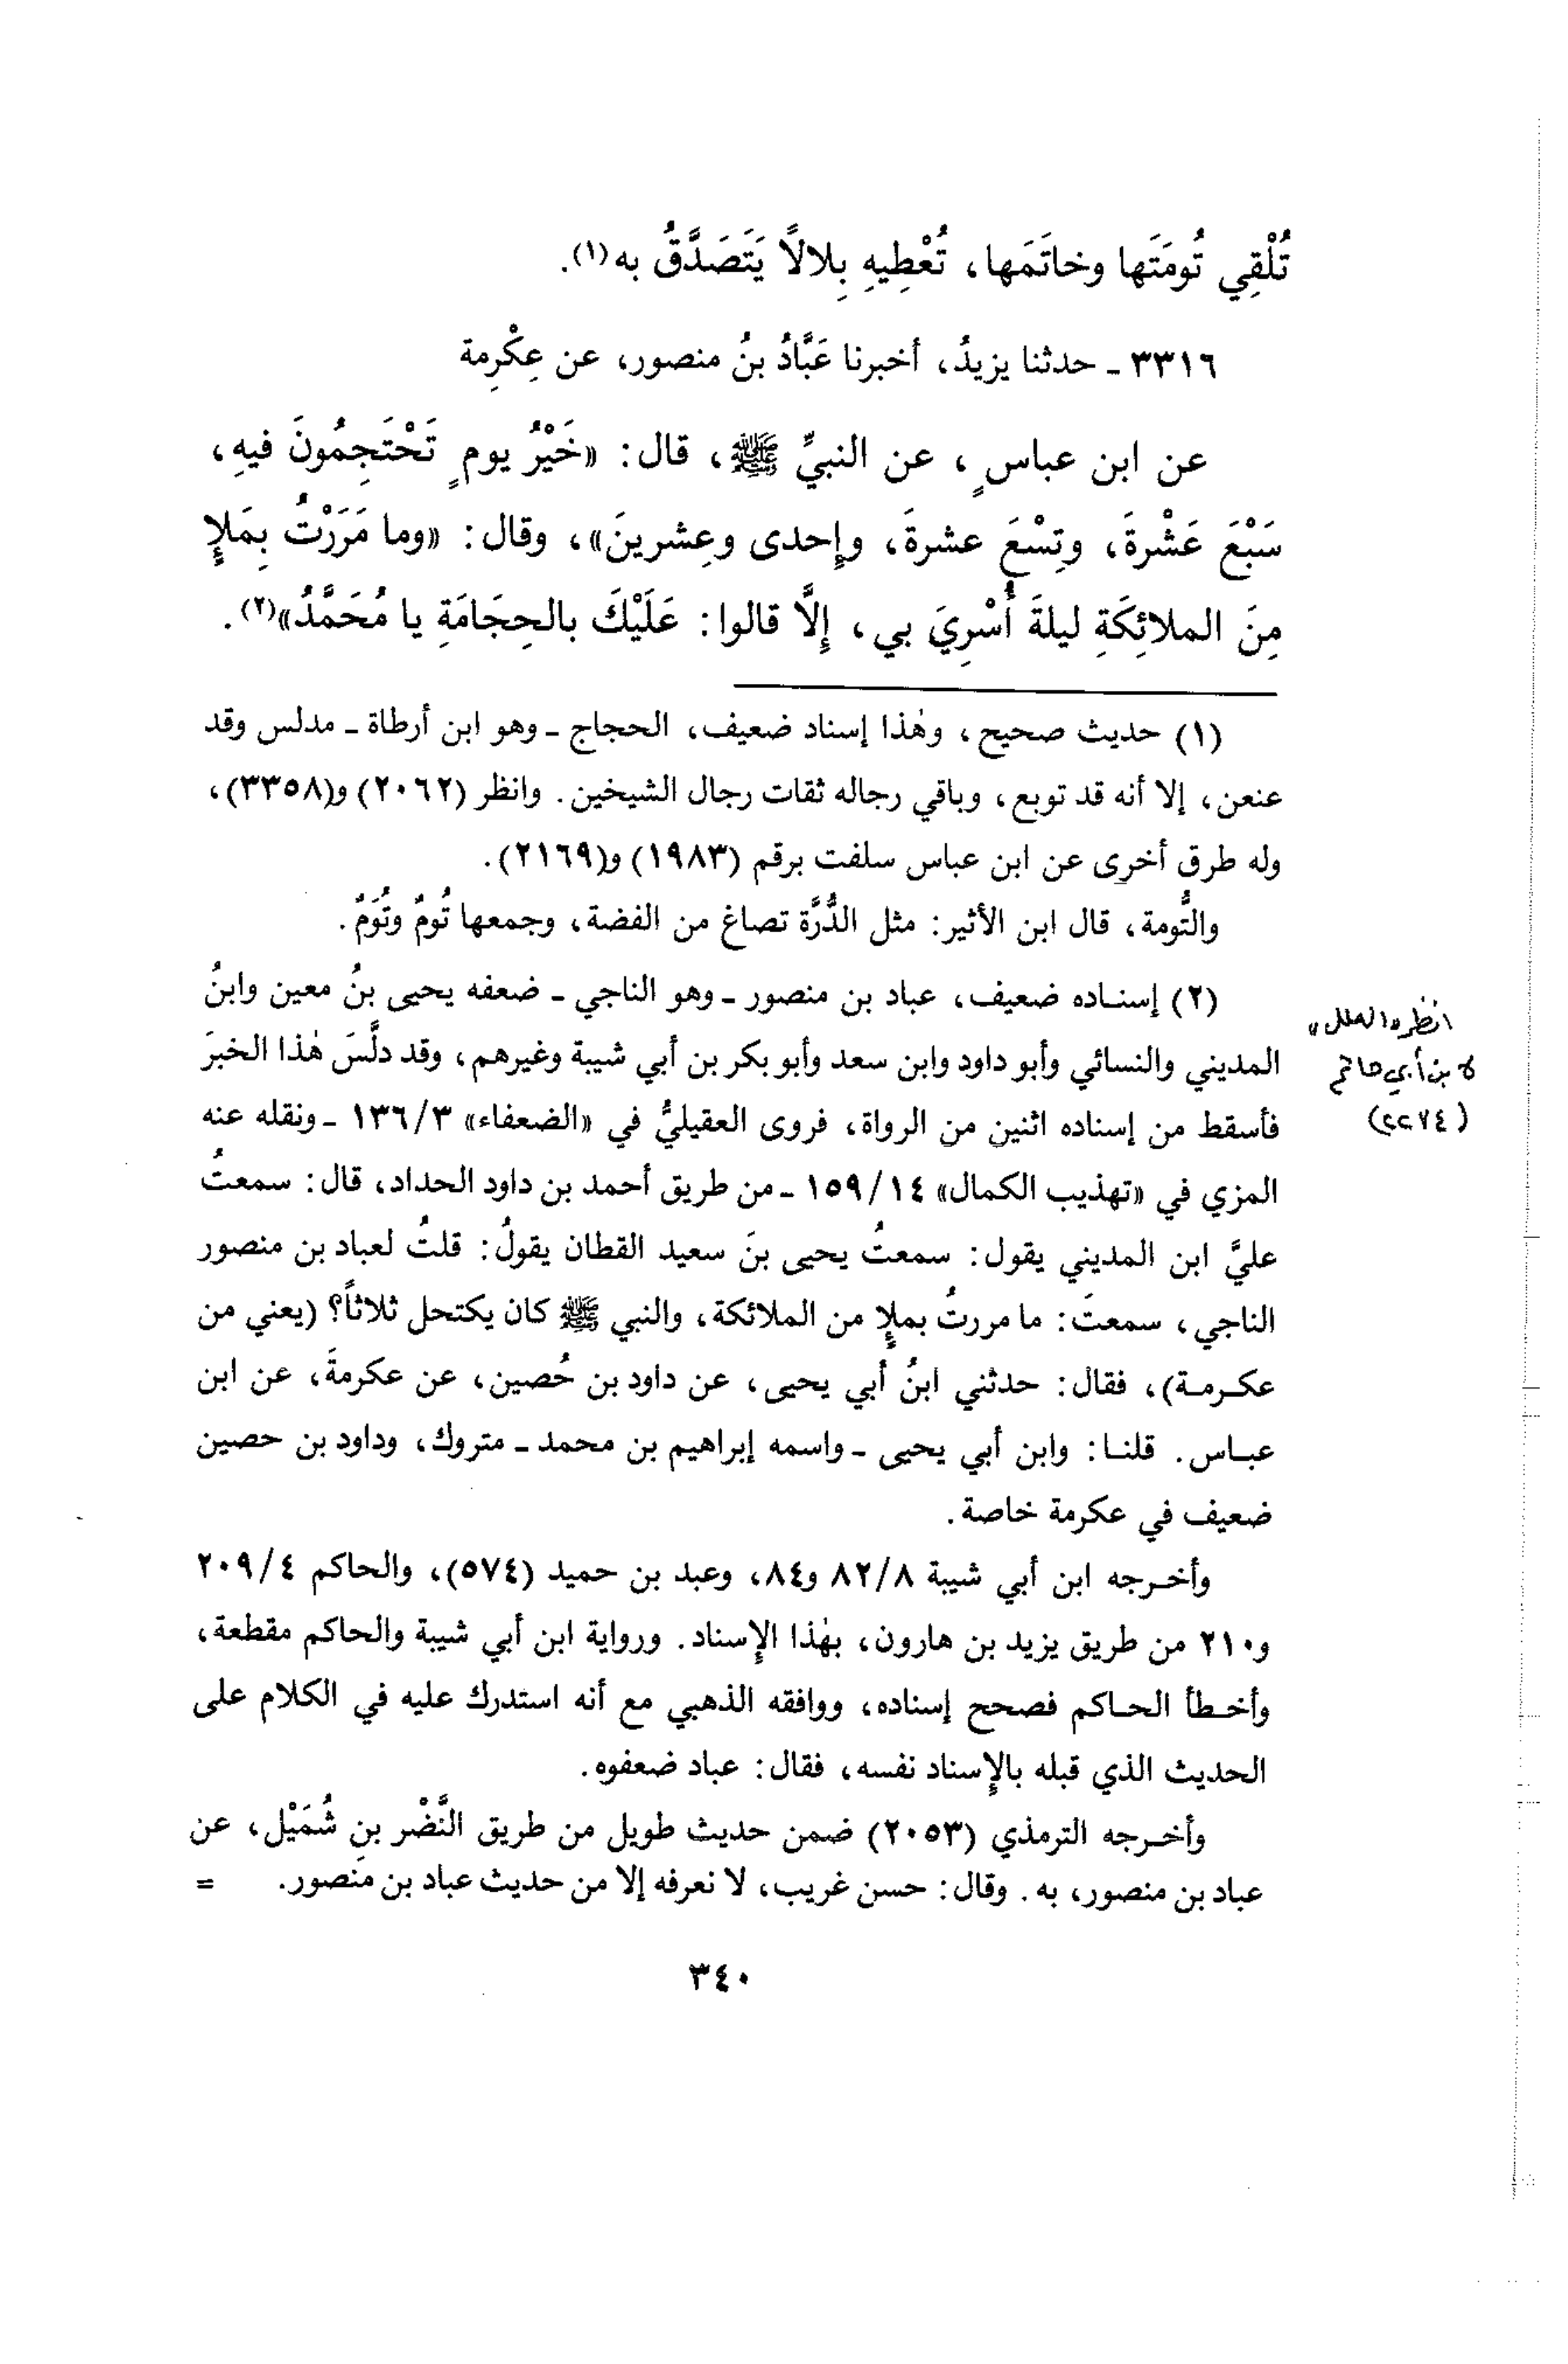 تُلْقِي تُومَتَها وخاتَمَها، تُعْطِيهِ بِلالًا يَتَصَدَّقُ به(١).
٣٣١٦ ـ حدثنا يزيدُ، أخبرنا عَبَّادُ بنُ منصور، عن عِكْرِمة
عن ابن عباسٍ، عن النبيِّ ﷺ، قال: «خَيْرُ يومٍ تَحْتَجِمُونَ فيهِ،
سَبْعَ عَشْرةَ، وتِسْعَ عشرةَ، وإحدى وعِشرينَ»، وقال: «وما مَرَرْتُ بِمَلإٍ
مِنَ الملائِكَةِ ليلةَ أُسْرِيَ بي، إلَّا قالوا: عَلَيْكَ بالحِجَامَةِ يا مُحَمَّدُ»(٢).
(١) حديث صحيح، وهٰذا إسناد ضعيف، الحجاج ـ وهو ابن أرطاة ـ مدلس وقد
عنعن، إلا أنه قد توبع، وباقي رجاله ثقات رجال الشيخين. وانظر (٢٠٦٢) و(٣٣٥٨)،
وله طرق أخرى عن ابن عباس سلفت برقم (١٩٨٣) و(٢١٦٩).
والتُّومة، قال ابن الأثير: مثل الدُّرَّة تصاغ من الفضة، وجمعها تُومٌ وتُوَمٌ.
(٢) إسناده ضعيف، عباد بن منصور ـ وهو الناجي ـ ضعفه يحيى بنُ معين وابنُ
المديني والنسائي وأبو داود وابن سعد وأبو بكر بن أبي شيبة وغيرهم، وقد دلَّسَ هٰذا الخبرَ
فأسقط من إسناده اثنين من الرواة، فروى العقيليُّ في «الضعفاء» ١٣٦/٣ ـ ونقله عنه
المزي في «تهذيب الكمال» ١٥٩/١٤ ـ من طريق أحمد بن داود الحداد، قال: سمعتُ
عليَّ ابن المديني يقول: سمعتُ يحيى بنَ سعيد القطان يقولُ: قلتُ لعباد بن منصور
الناجي، سمعتَ: ما مررتُ بملإٍ من الملائكة، والنبي ﷺ كان يكتحل ثلاثاً؟ (يعني من
عكرمة)، فقال: حدثني ابنُ أبي يحيى، عن داود بن حُصين، عن عكرمةَ، عن ابن
عباس. قلنا: وابن أبي يحيى ـ واسمه إبراهيم بن محمد ـ متروك، وداود بن حصين
ضعيف في عكرمة خاصة.
وأخرجه ابن أبي شيبة ٨٢/٨ و٨٤، وعبد بن حميد (٥٧٤)، والحاكم ٢٠٩/٤
و٢١٠ من طريق يزيد بن هارون، بهٰذا الإسناد. ورواية ابن أبي شيبة والحاكم مقطعة،
وأخطأ الحاكم فصحح إسناده، ووافقه الذهبي مع أنه استدرك عليه في الكلام على
الحديث الذي قبله بالإسناد نفسه، فقال: عباد ضعفوه.
وأخرجه الترمذي (٢٠٥٣) ضمن حديث طويل من طريق النَّضْر بنِ شُمَيْل، عن
عباد بن منصور، به. وقال: حسن غريب، لا نعرفه إلا من حديث عباد بن منصور. =
٣٤٠
انظر «العلل»
لابن أبي حاتم
(٢٢٧٤)